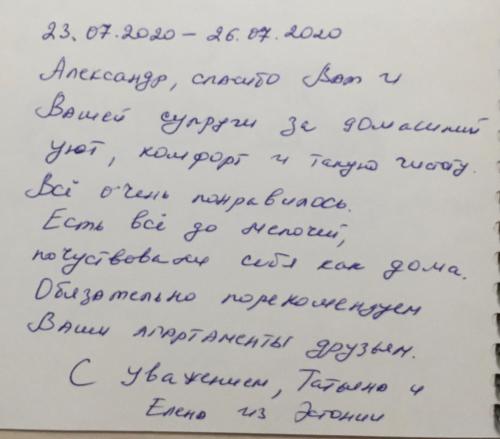 23.07.2020 – 26.07.2020
Александр, спасибо Вам и
Вашей супруги за домашний
уют, комфорт и такую чистоту.
Всё очень понравилось.
Есть всё до мелочей,
почуствовали себя как дома.
Обязательно порекомендуем
Ваши апартаменты друзьям.
С уважением, Татьяна и
Елена из Эстонии